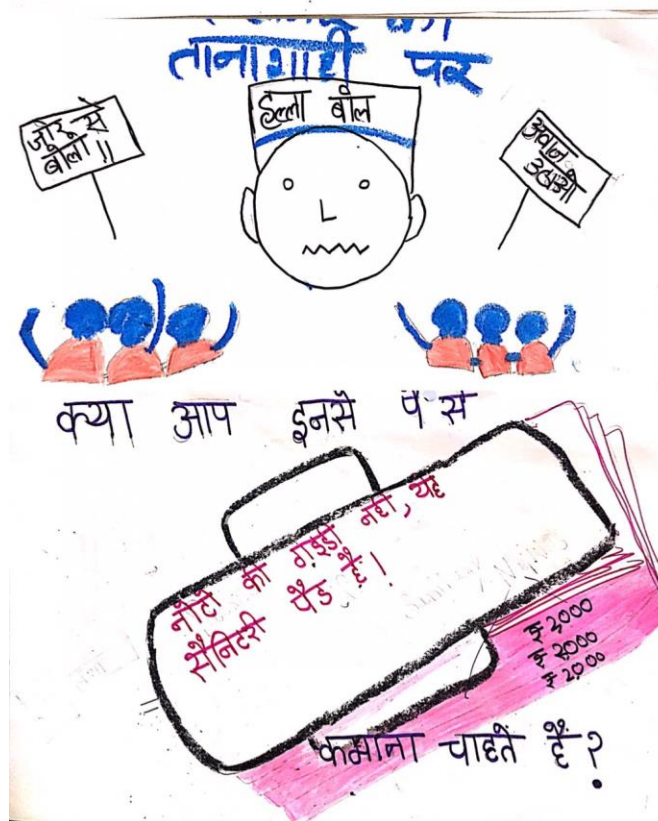 तानाशाही पर
हल्ला बोल
जोर से
बोलो !!
अवाज
उठाओ
क्या आप इनसे पैसे
नोटों की गड्डी नहीं, यह
सैनिटरी पैड है।
₹ 2,000
₹ 2000
₹ 2000
कमाना चाहते हैं?